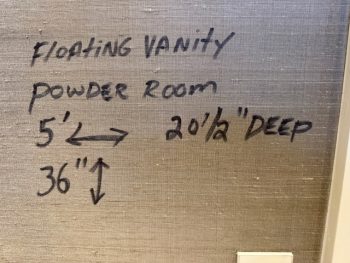 FLOATING VANITY
POWDER ROOM
5' ↔ 20 1/2" DEEP
36" ↕